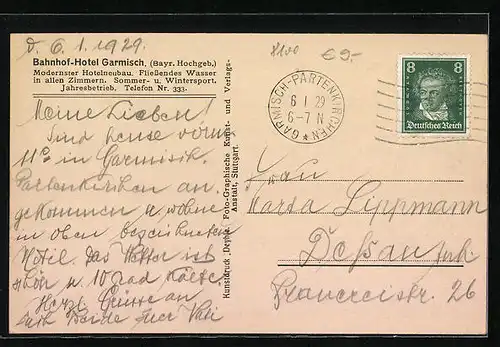 d. 6.1.1929.
Bahnhof-Hotel Garmisch, (Bayr. Hochgeb.)
Modernster Hotelneubau. Fließendes Wasser
in allen Zimmern. Sommer- u. Wintersport.
Jahresbetrieb. Telefon Nr. 333.
Meine Lieben!
Sind heute vorm.
in Garmisch-
Partenkirchen an-
gekommen u. wohne
in oben bezeichneten
Hotel. Das Wetter ist
schön u. 10 Grad Kälte.
Herzl. Grüsse an
Euch Beide Euer
Kunstdruck „Dephi“ Foto-Graphische Kunst- und Verlags-
anstalt, Stuttgart.
€9-
GARMISCH-PARTENKIRCHEN
6 1 29
6-7 N
8 8
Deutsches Reich
Frau
Marta Lippmann
Dessau
Franzeistr. 26